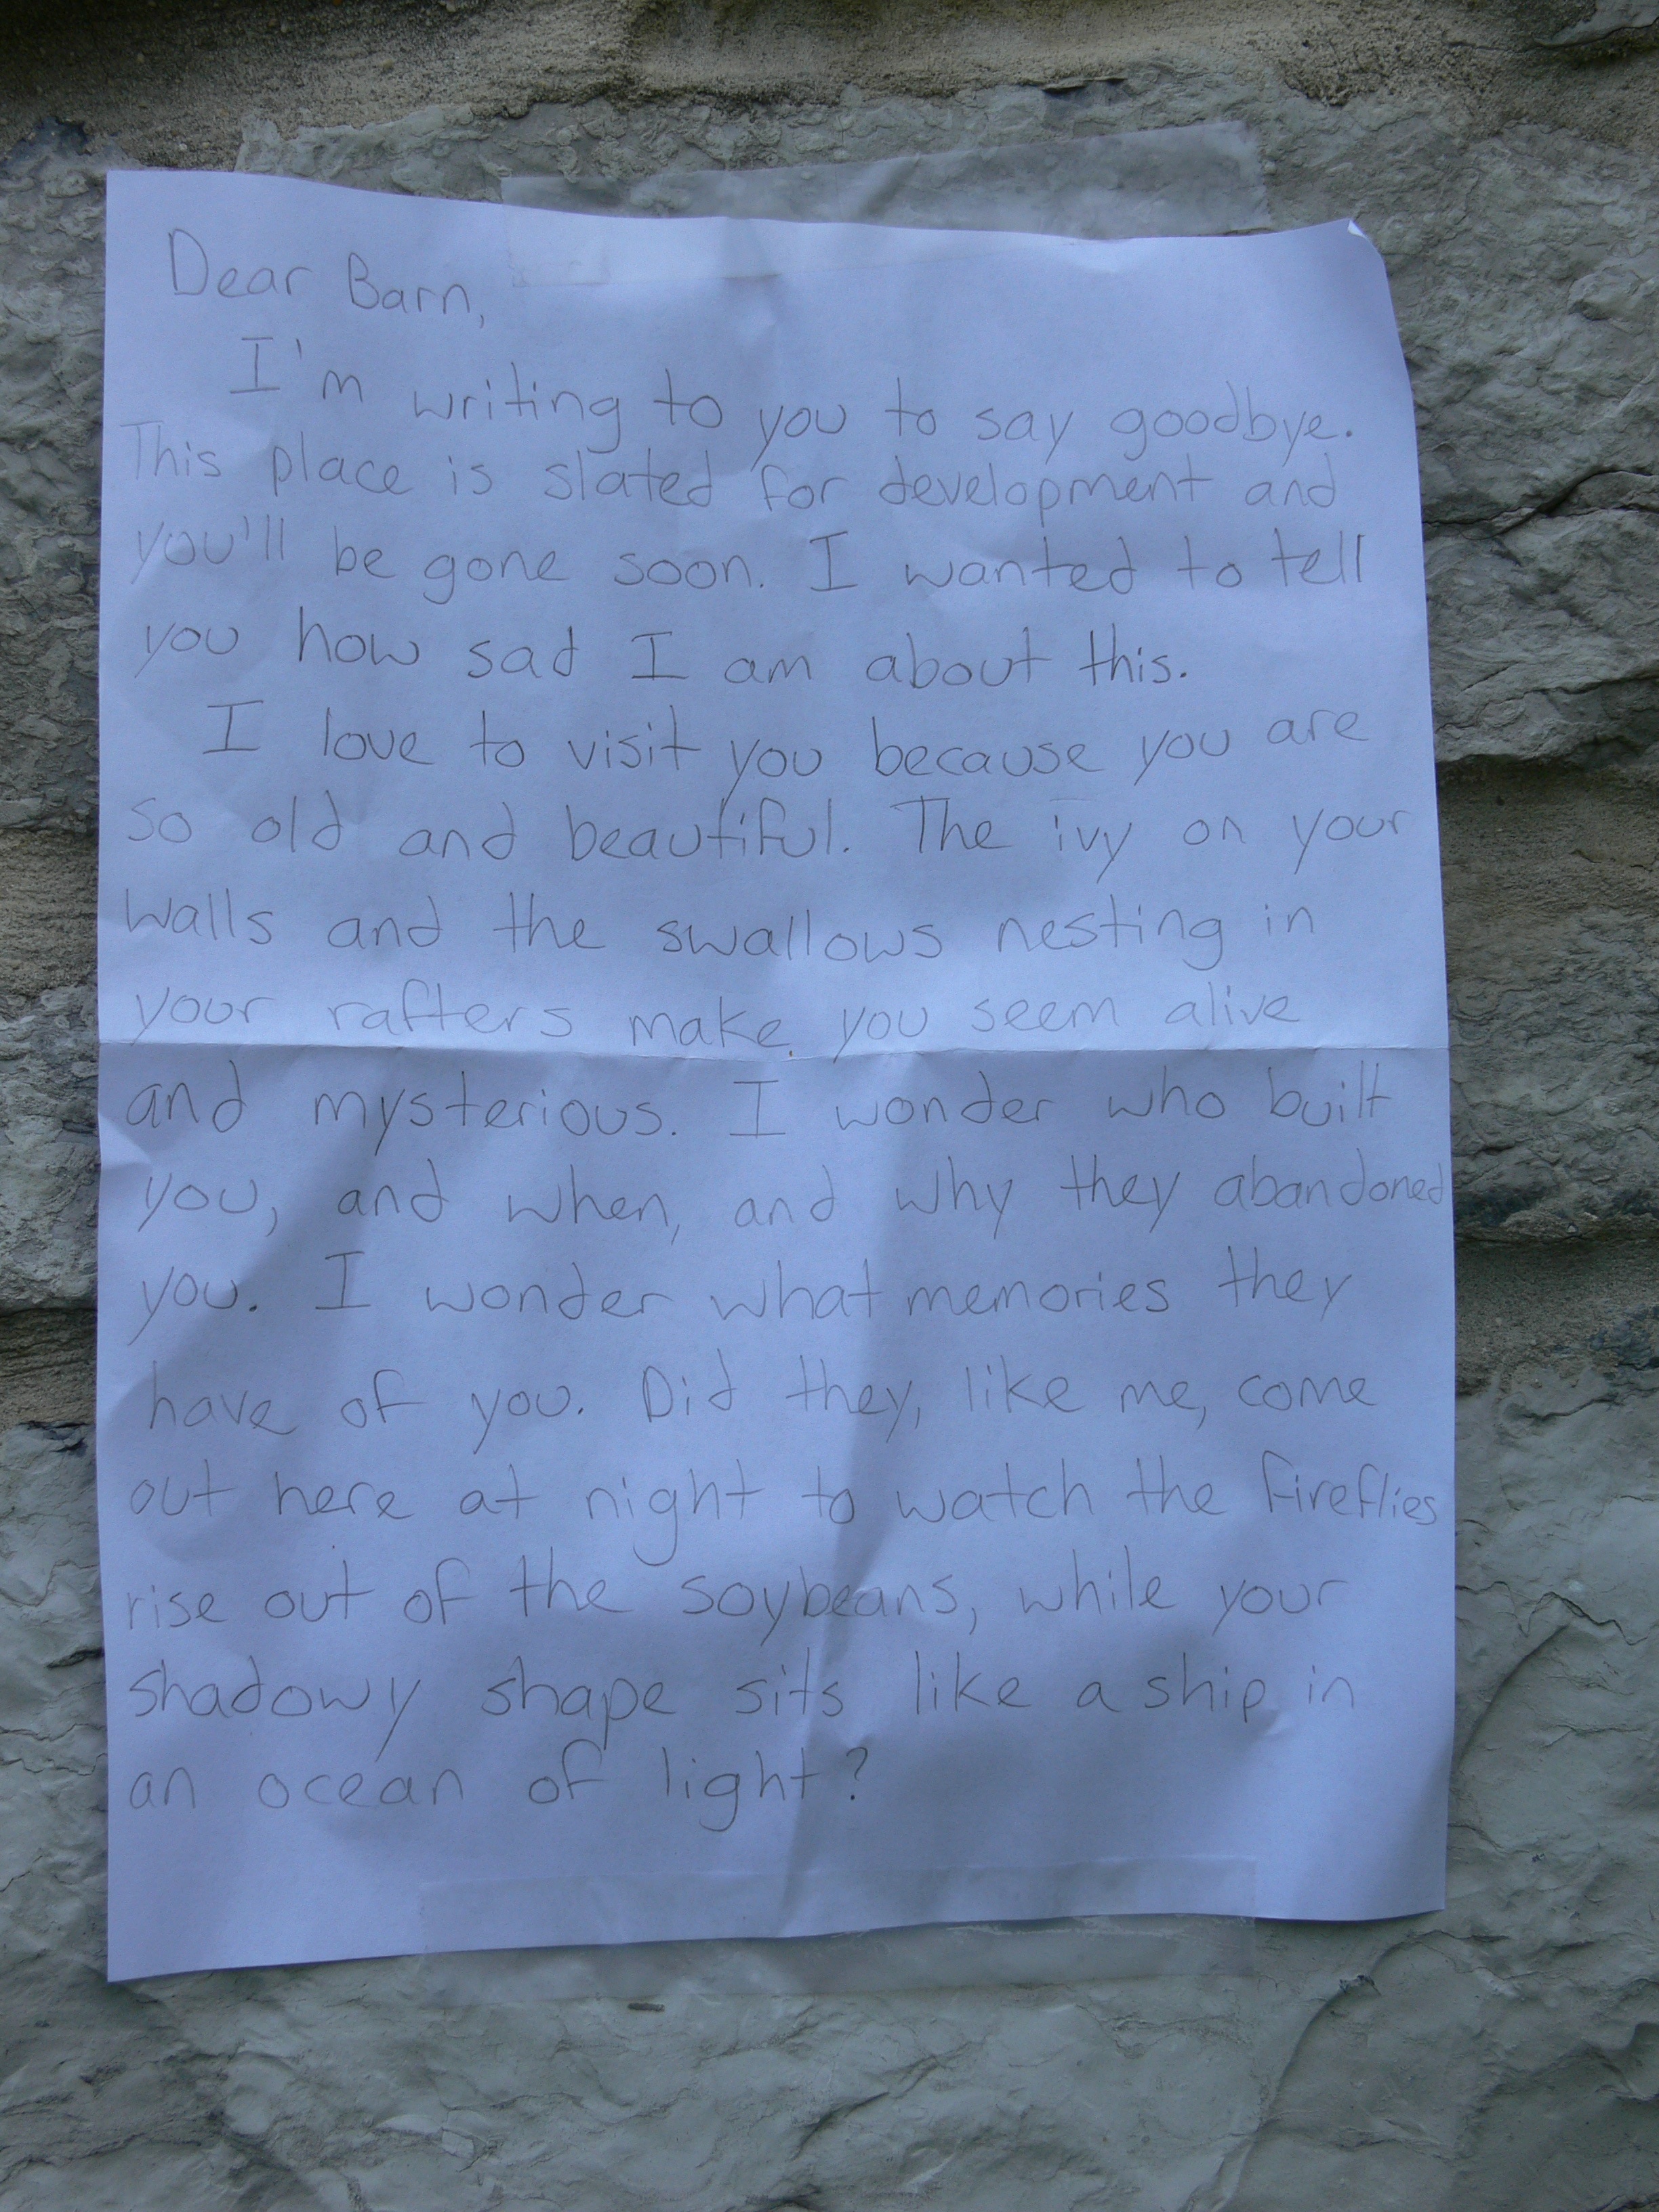 Dear Barn,
I'm writing to you to say goodbye.
This place is slated for development and
you'll be gone soon. I wanted to tell
you how sad I am about this.
I love to visit you because you are
so old and beautiful. The ivy on your
walls and the swallows nesting in
your rafters make you seem alive
and mysterious. I wonder who built
you, and when, and why they abandoned
you. I wonder what memories they
have of you. Did they, like me, come
out here at night to watch the fireflies
rise out of the soybeans, while your
shadowy shape sits like a ship in
an ocean of light?